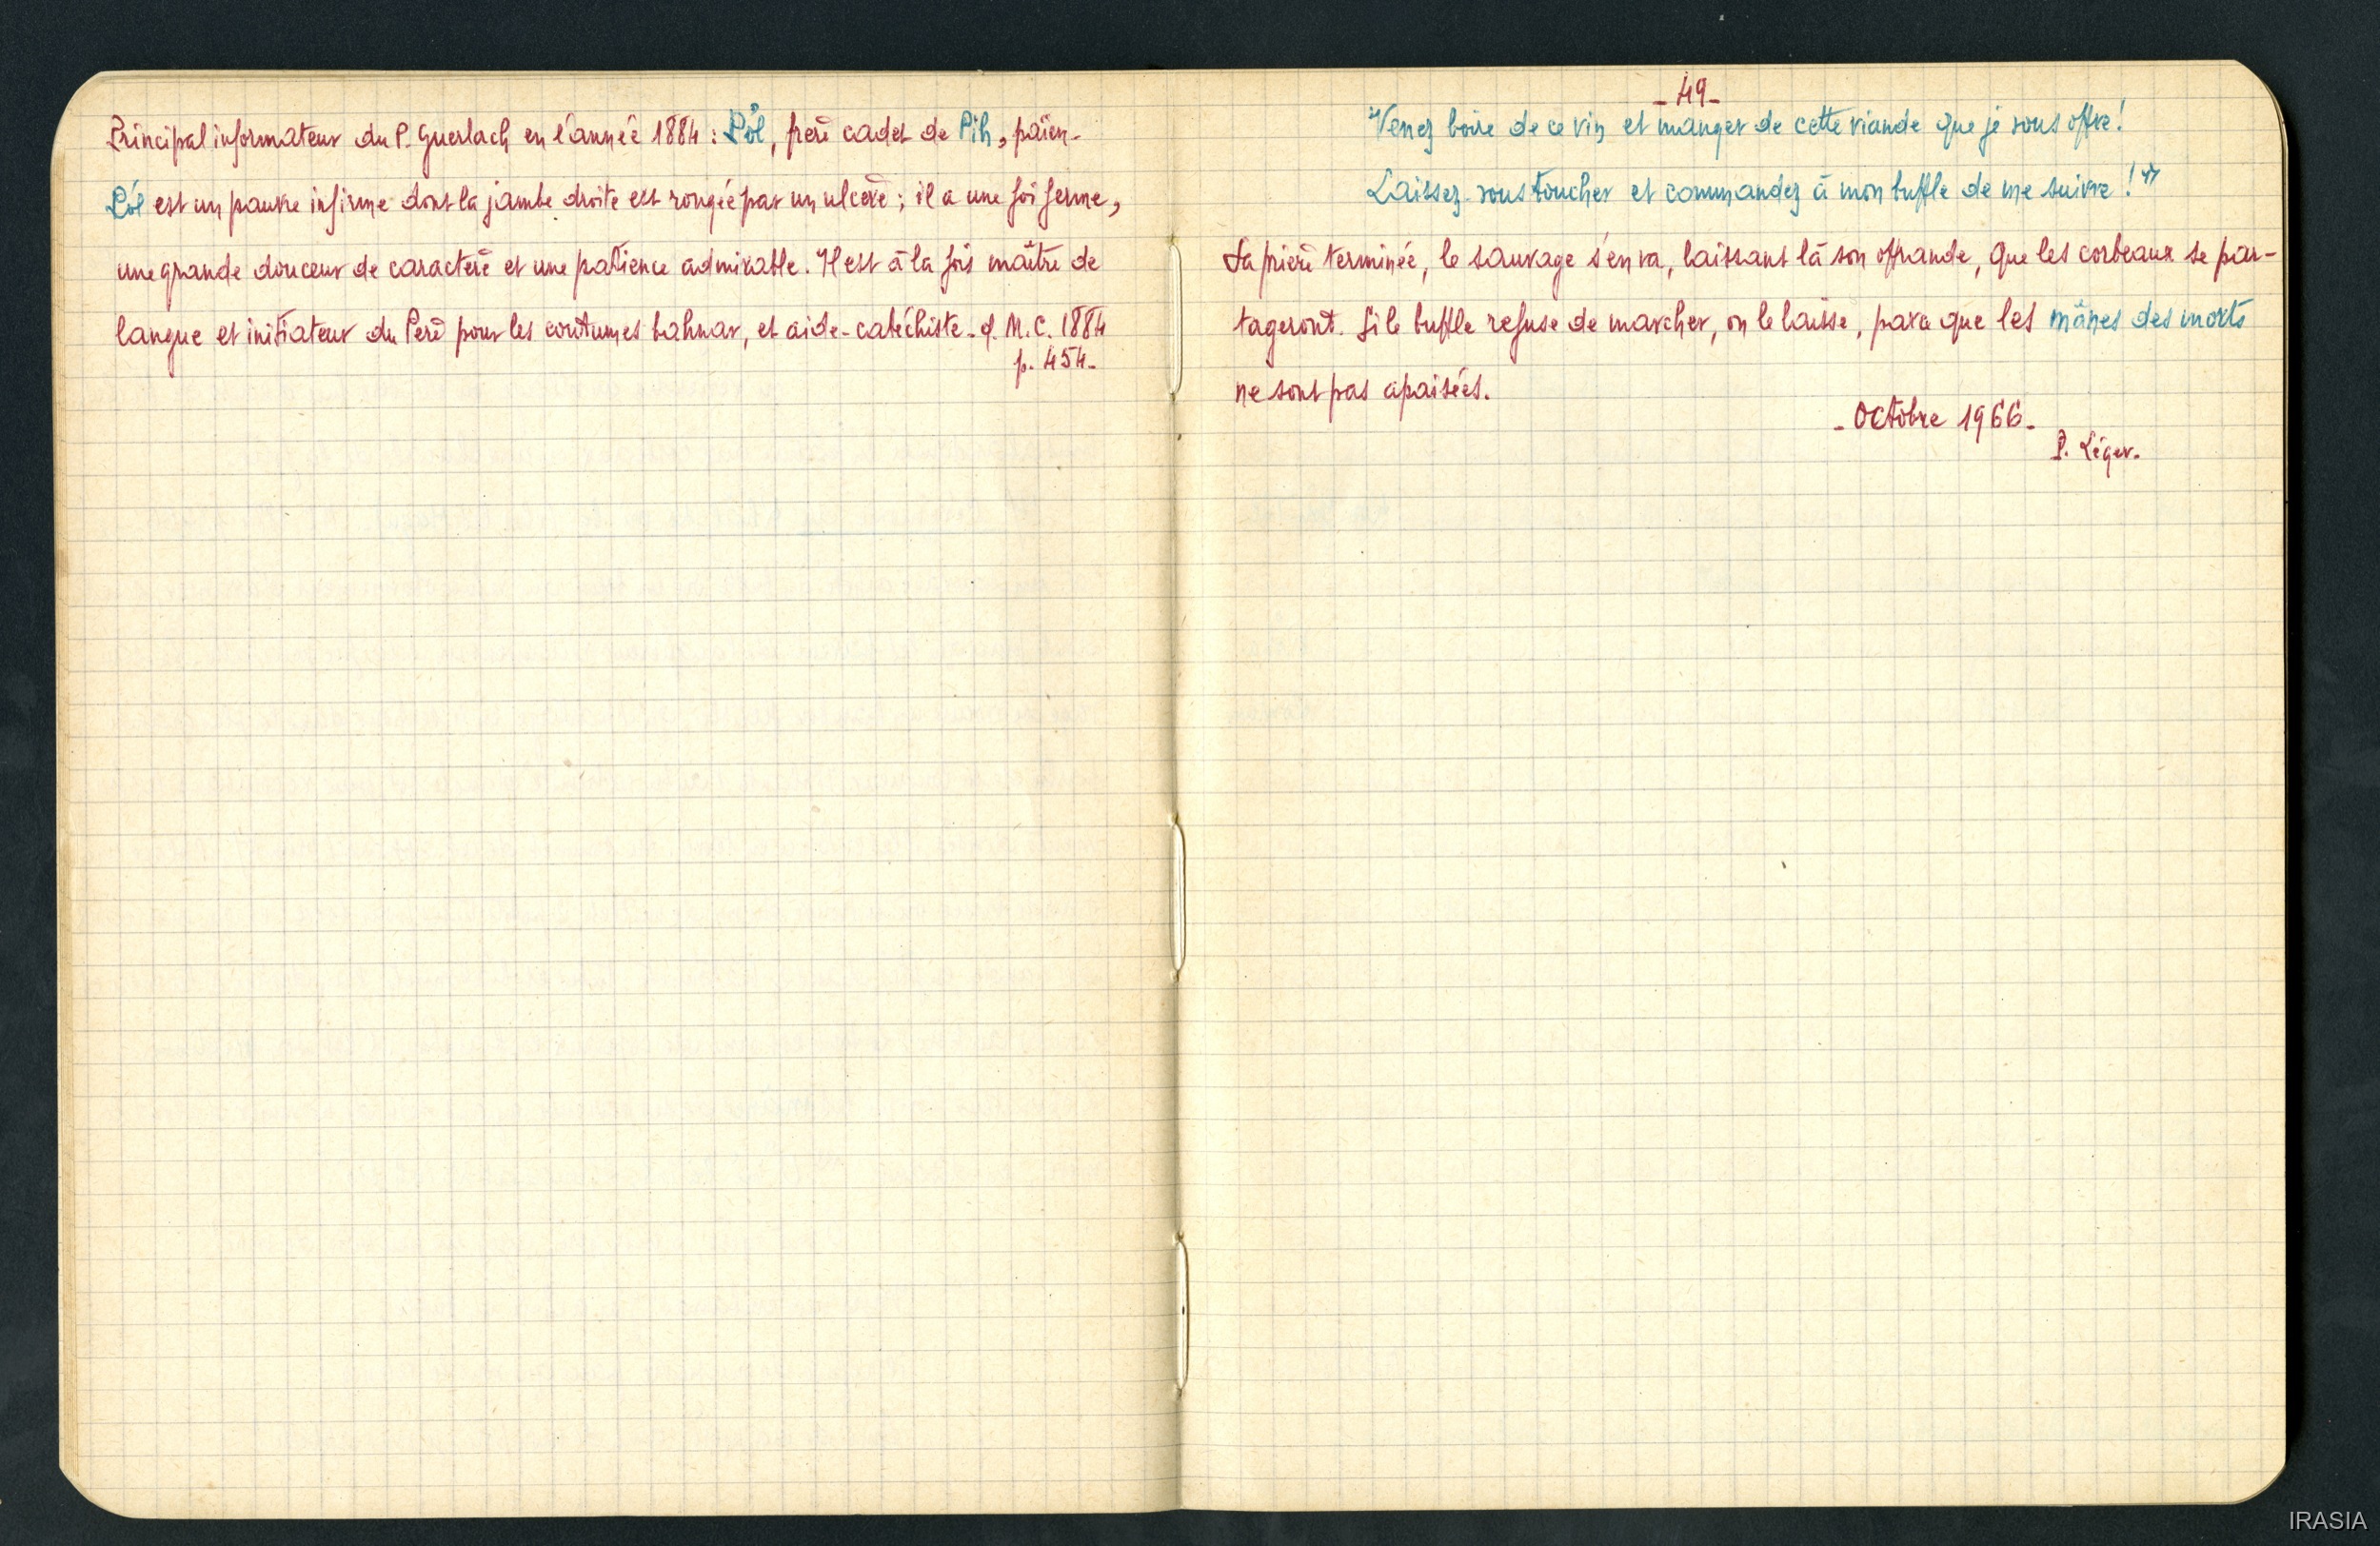 Principal informateur du P. Guerlach en l'année 1884 : Pôl, frère cadet de Pih, païen.
Pôl est un pauvre infirme dont la jambe droite est rongée par un ulcère ; il a une foi ferme,
une grande douceur de caractère et une patience admirable. Il est à la fois maître de
langue et initiateur du Père pour les coutumes bahnar, et aide-catéchiste. cf. M.C. 1884
p. 454.
- 49 -
"Venez boire de ce vin et manger de cette viande que je vous offre !
Laissez-vous toucher et commandez à mon buffle de me suivre !"
Sa prière terminée, le sauvage s'en va, laissant là son offrande, que les corbeaux se par-
tageront. Si le buffle refuse de marcher, on le laisse, parce que les mânes des morts
ne sont pas apaisées.
- Octobre 1966 -
P. Léger.
IRASIA